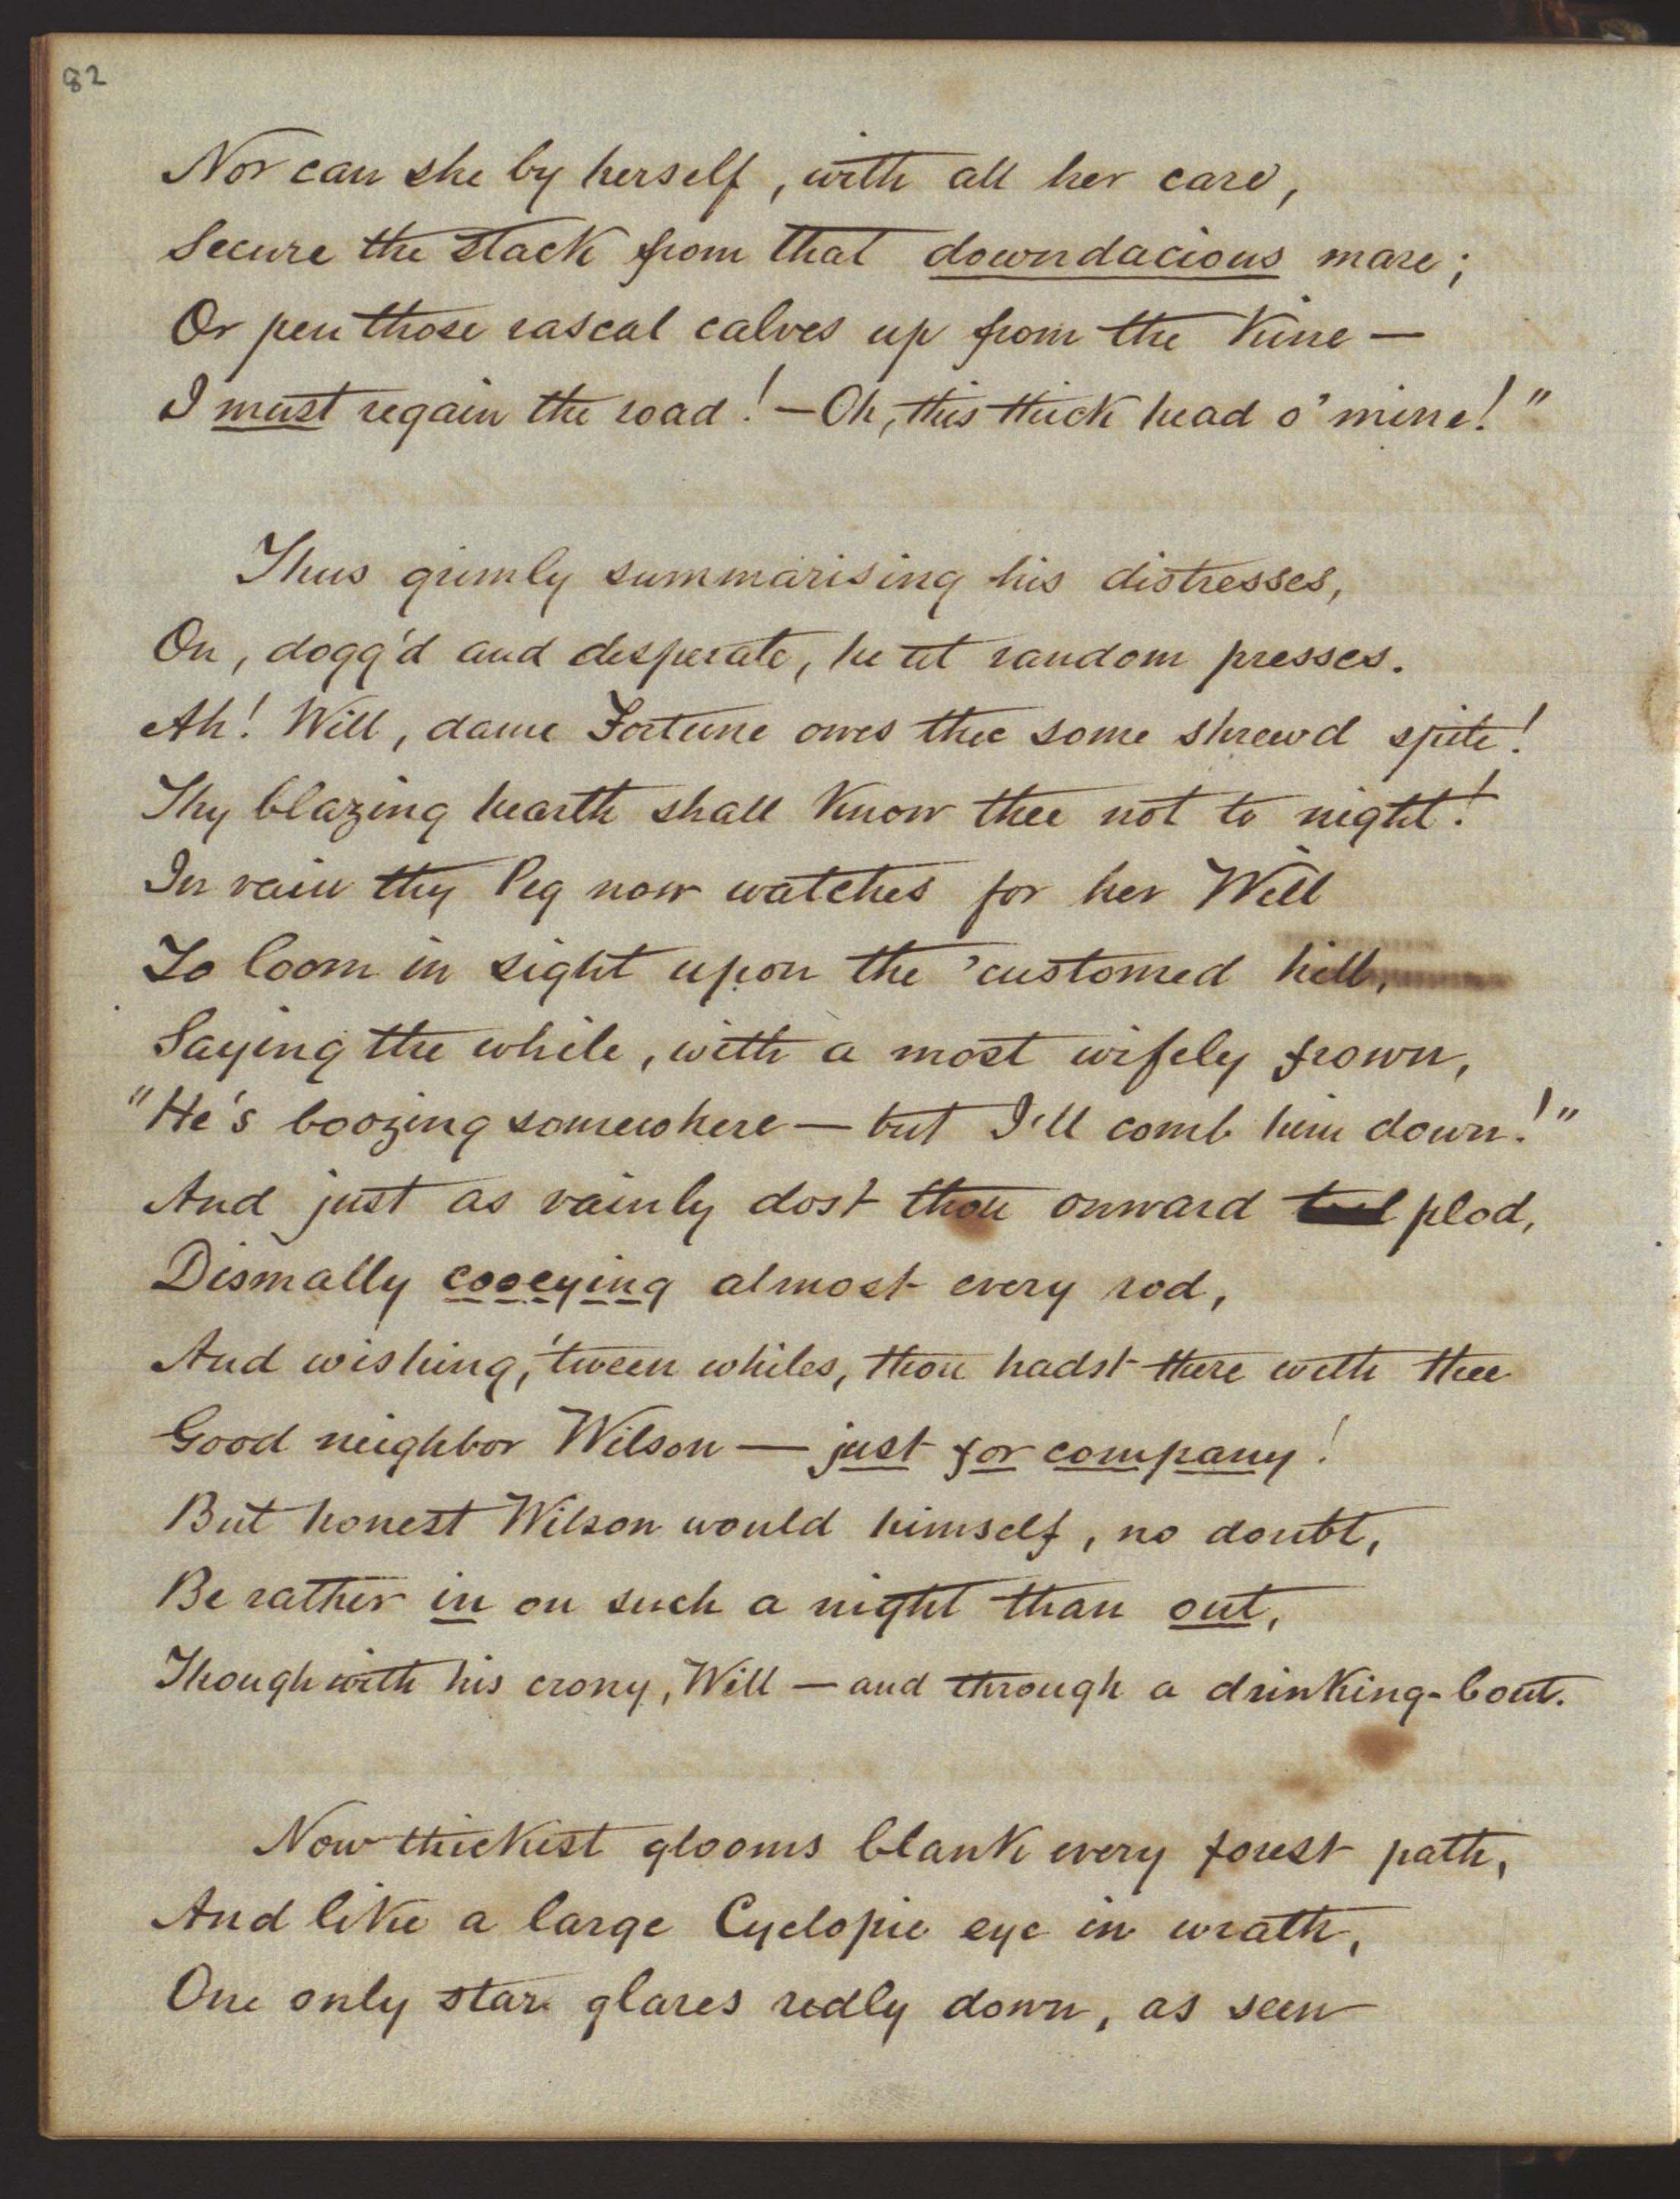 82
Nor can she by herself, with all her care,
Secure the stack from that downdacious mare;
Or pen those rascal calves up from the Kine —
I must regain the road! — Oh, this thick head o' mine!"
Thus grimly summarising his distresses,
On, dogg'd and desperate, he at random presses.
Ah! Will, dame Fortune owes thee some shrewd spite!
Thy blazing hearth shall Know thee not to night!
In vain thy Peg now watches for her Will
To loom in sight upon the 'customed hill,
Saying the while, with a most wifely frown,
"He's boozing somewhere — but I'll comb him down!"
And just as vainly dost thou onward plod,
Dismally cooeying almost every rod,
And wishing, 'tween whiles, thou hadst there with thee
Good neighbor Wilson — just for company!
But honest Wilson would himself, no doubt,
Be rather in on such a night than out,
Though with his crony, Will — and through a drinking-bout.
Now thickest glooms blank every forest path,
And like a large Cyclopic eye in wrath,
One only star glares redly down, as seen